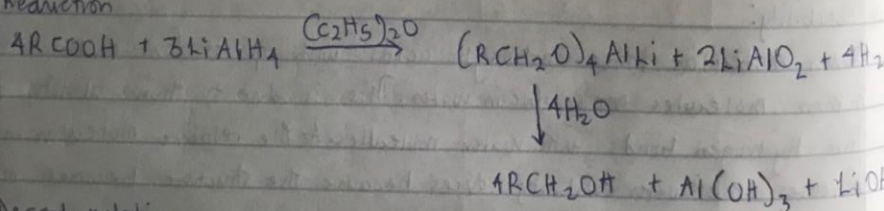 Reduction
(C2H5)2O
4RCOOH + 3LiAlH4 → (RCH2O)4AlLi + 2LiAlO2 + 4H2
↓ 4H2O
4RCH2OH + Al(OH)3 + LiOH